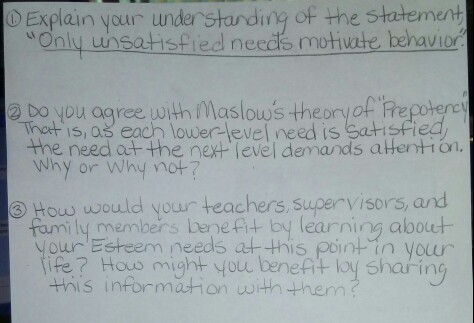 ① Explain your understanding of the statement,
"Only unsatisfied needs motivate behavior."
② Do you agree with Maslow's theory of "Prepotency"
That is, as each lower-level need is satisfied,
the need at the next level demands attention.
Why or Why not?
③ How would your teachers, supervisors, and
family members benefit by learning about
your Esteem needs at this point in your
life? How might you benefit by sharing
this information with them?